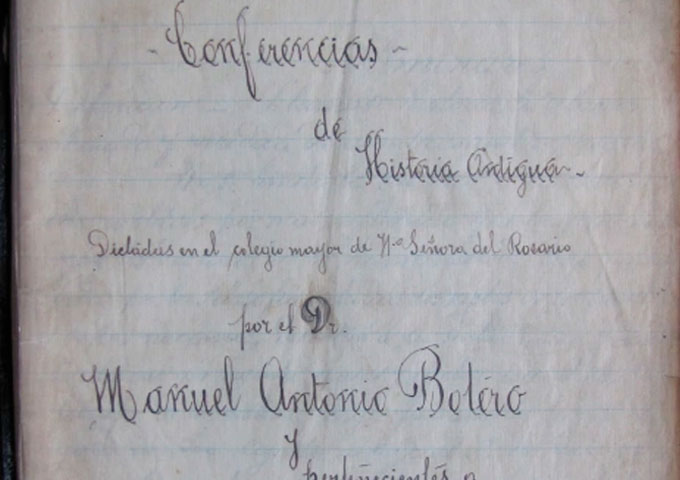 - Conferencias -
de
Historia Antigua -
Dictadas en el colegio mayor de Nª Señora del Rosario
por el Dr.
Manuel Antonio Botéro
y
pertenecientes a